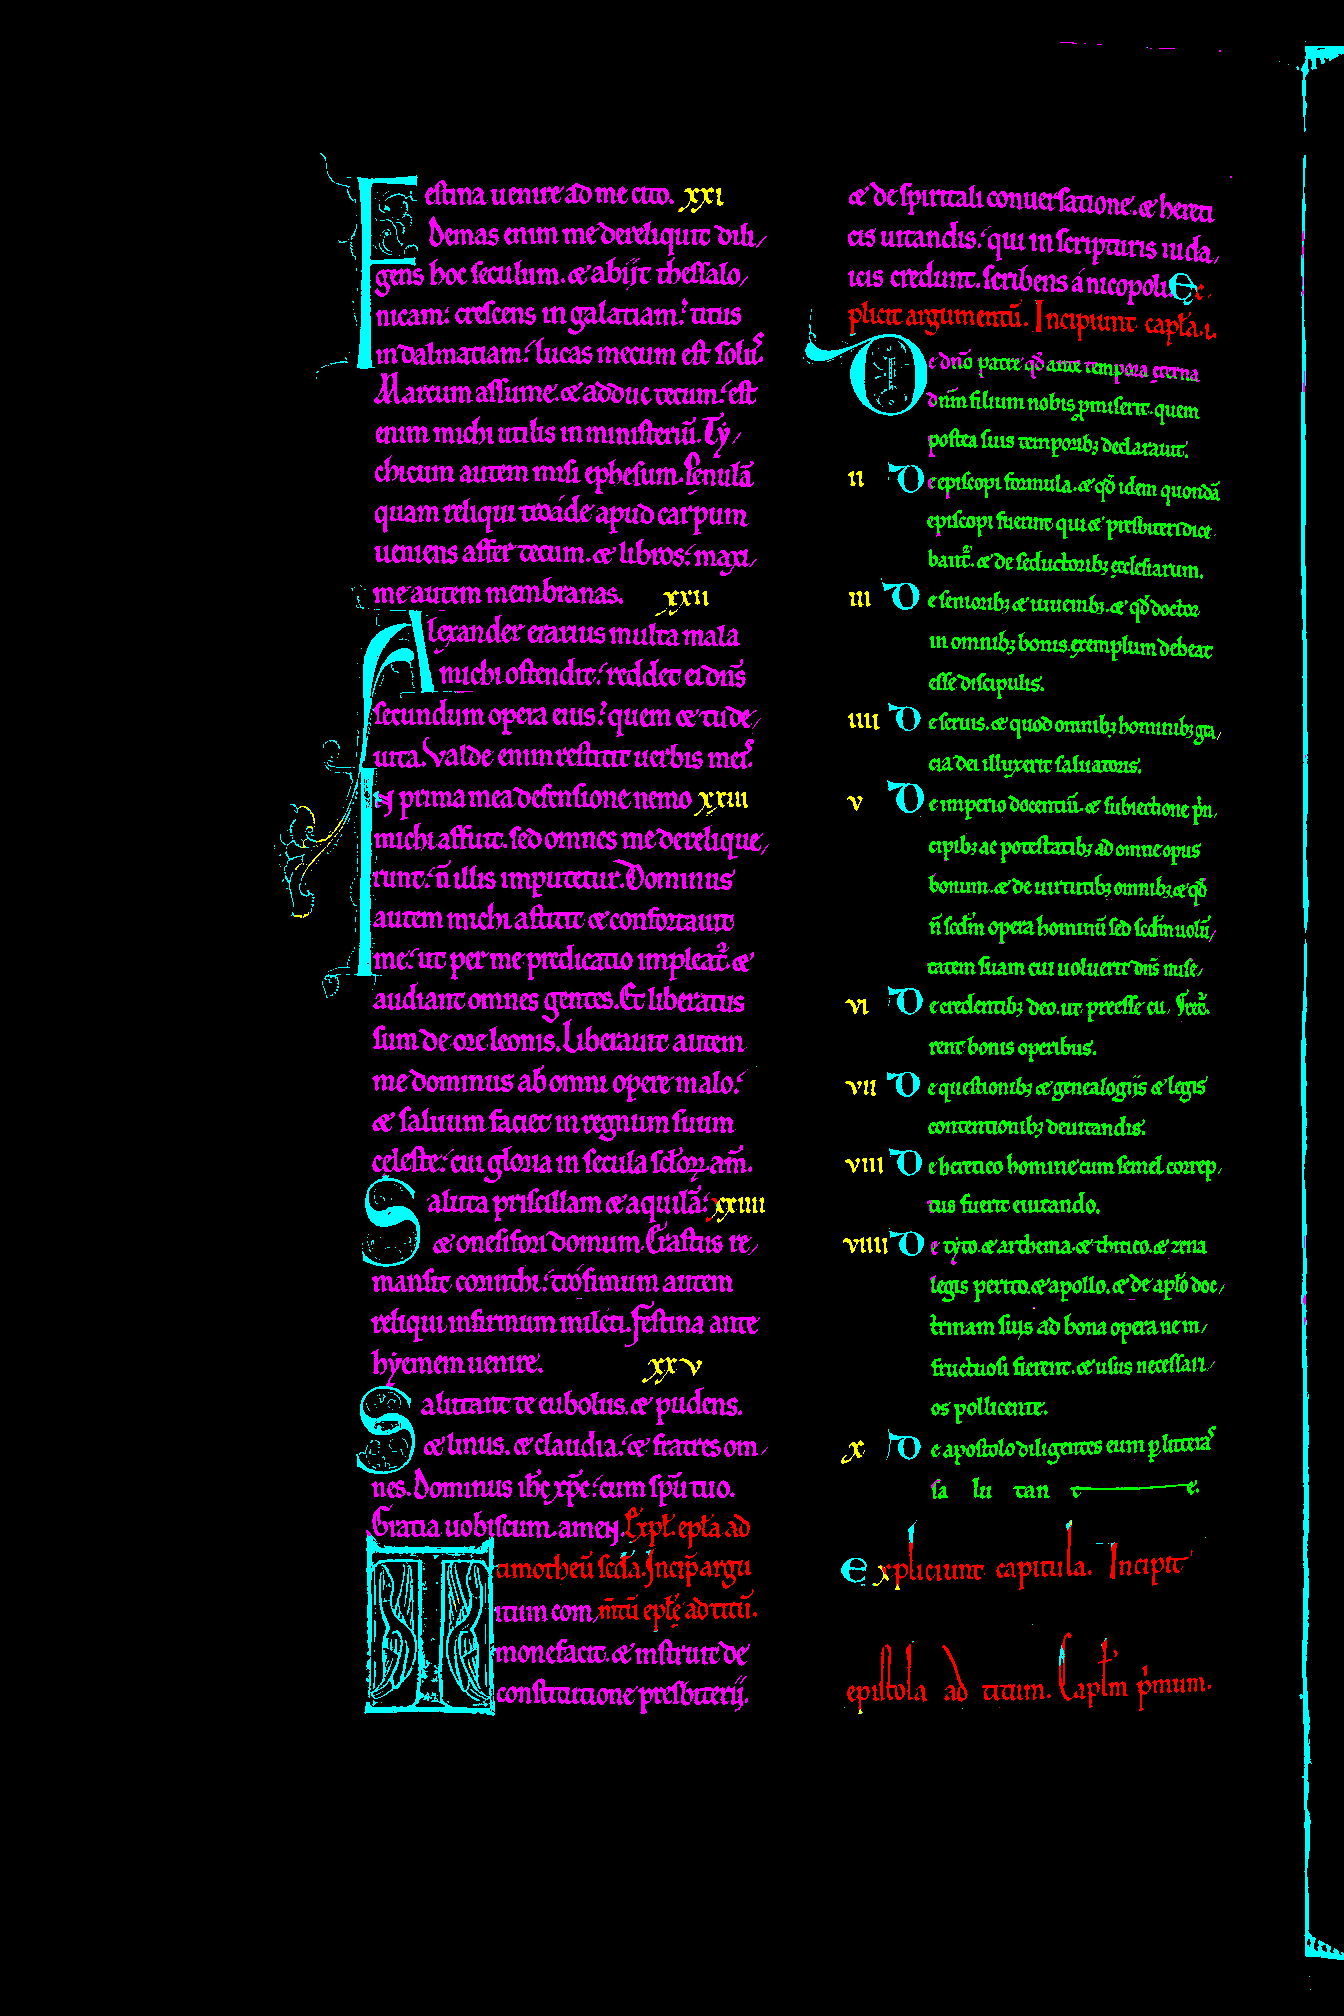 Festina uenire ad me cito. xxi
Demas enim me dereliquit dili/
gens hoc seculum. & abijt thessalo/
nicam: crescens in galatiam: titus
in dalmatiam: lucas mecum est solus.
Marcum assume & adduc tecum: est
enim michi utilis in ministeriū. Ty/
chicum autem misi ephesum. Penulā
quam reliqui troade apud carpum
ueniens affer tecum. & libros: maxi/
me autem membranas. xxii
Alexander erarius multa mala
michi ostendit: reddet ei dn̄s
secundum opera eius: quem & tu de/
uita. Valde enim restitit uerbis meis.
IN prima mea defensione nemo xxiii
michi affuit. sed omnes me derelique/
runt: n̄ illis imputetur. Dominus
autem michi astitit & confortauit
me: ut per me predicatio impleat̄ &
audiant omnes gentes. Et liberatus
sum de ore leonis. Liberauit autem
me dominus ab omni opere malo:
& saluum faciet in regnum suum
celeste: cui gloria in secula sc̄loꝝ. am̄.
Saluta priscillam & aquilā: xxiiii
& onesifori domum. Erastus re/
mansit corinthi: trofimum autem
reliqui infirmum mileti. Festina ante
hyemem uenire. xxv
Salutant te eubolus. & pudens.
& linus. & claudia: & fratres om/
nes. Dominus ih̄c xp̄c: cum sp̄u tuo.
Gratia uobiscum. amen. Expł. epła ad
timotheū scd̄a. Incip̄ argu
Titum com/ m̄tū epłę ad titū.
monefacit. & instruit de
constitutione presbiterij.
& de spiritali conuersatione. & hereti
cis uitandis: qui in scripturis iuda/
icis credunt. scribens a nicopoli. Ex/
plicit argumentū. Incipiunt capła. i.
De dn̄o patre qđ ante tempora eterna
dn̄m filium nobis ꝓmiserit. quem
postea suis temporibꝫ declarauit.
ii De episcopi formula. & qđ idem quondā
episcopi fuerint qui & presbiteri dice
bant̄. & de seductoribꝫ ecclesiarum.
iii De senioribꝫ & iuuenibꝫ. & qđ doctor
in omnibꝫ bonis exemplum debeat
esse discipulis.
iiii De seruis. & quod omnibꝫ hominibꝫ gra/
cia dei illuxerit saluatoris.
v De imperio docentiū. & subiectione prin/
cipibꝫ ac potestatibꝫ ad omne opus
bonum. & de uirtutibꝫ omnibꝫ. & qđ
n̄ scd̄m opera hominū sed scd̄m uolū/
tatem suam cui uoluerit dn̄s mise/
vi De credentibꝫ deo. ut preesse cu/
rent bonis operibus.
vii De questionibꝫ & genealogiis & legis
contentionibꝫ deuitandis.
viii De heretico homine cum semel correp/
tus fuerit euitando.
viiii De tyto. & arthema. & thitico. & zena
legis perito. & apollo. & de apło doc/
trinam suis ad bona opera ne in/
fructuosi fierent. & usus necessari/
os pollicente.
x De apostolo diligentes eum ꝑ litteras
sa lu tan t e.
Expliciunt capitula. Incipit
epistola ad titum. Capłm p̄mum.